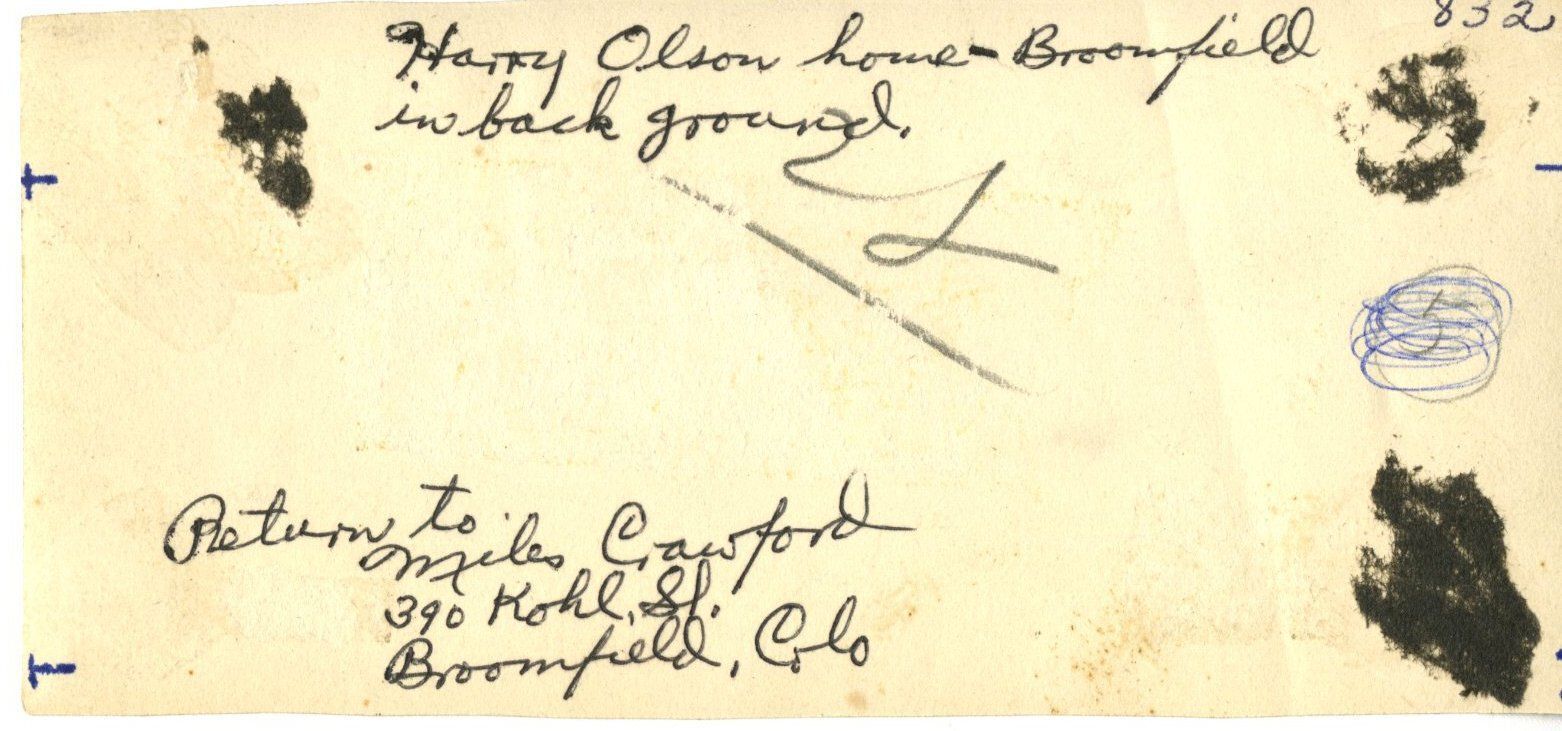 832
Harry Olson home - Broomfield
in back ground.
5
Return to
Miles Crawford
390 Kohl, St.
Broomfield, Colo